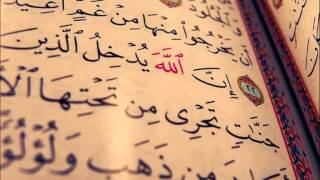 وَالْجُلُودُ
أَن يَخْرُجُوا۟ مِنْهَا مِنْ غَمٍّ أُعِيدُ
٢٢ إِنَّ ٱللَّهَ يُدْخِلُ ٱلَّذِينَ
جَنَّٰتٍ تَجْرِى مِن تَحْتِهَا ٱلْأَ
مِن ذَهَبٍ وَلُؤْلُؤً